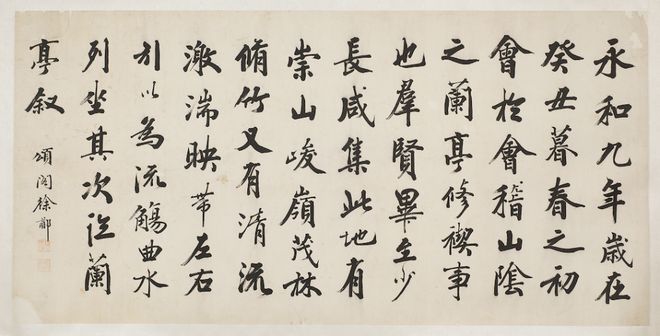 永和九年歲在
癸丑暮春之初
會於會稽山陰
之蘭亭修禊事
也羣賢畢至少
長咸集此地有
崇山峻嶺茂林
脩竹又有清流
激湍映帶左右
引以為流觴曲水
列坐其次臨蘭
亭叙
頌閣徐郙